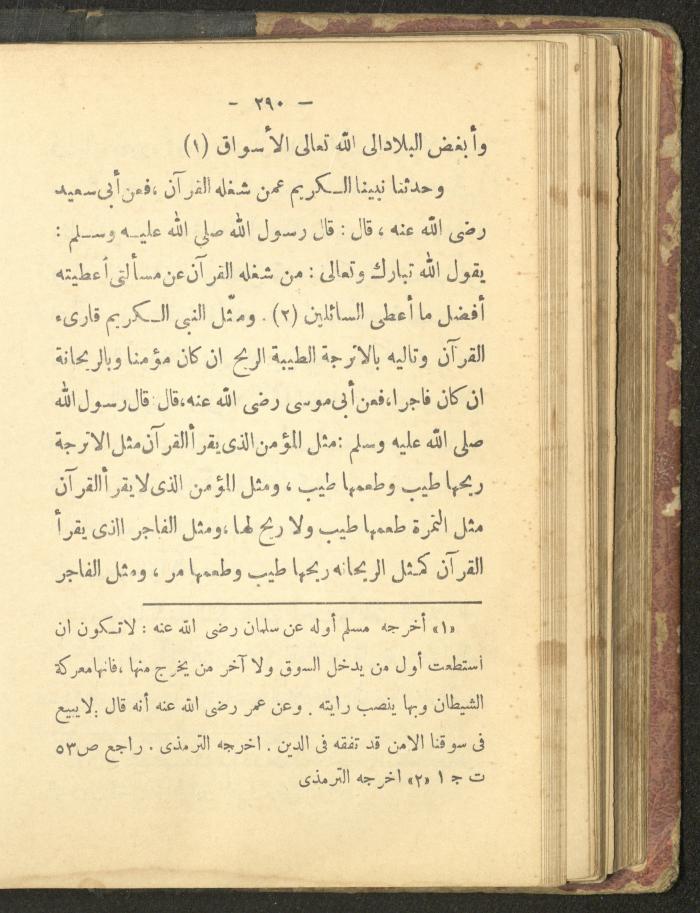 — ٢٩٠ —
وأبغض البلادالى الله تعالى الأسواق (١)
وحدثنا نبينا الكريم عمن شغله القرآن ،فعن أبى سعيد
رضى الله عنه ، قال : قال رسول الله صلى الله عليه وسلم :
يقول الله تبارك وتعالى : من شغله القرآن عن مسألتى أعطيته
أفضل ما أعطى السائلين (٢) . ومثّل النبى الكريم قارىء
القرآن وتاليه بالاترجة الطيبة الريح ان كان مؤمنا وبالريحانة
ان كان فاجرا،فعن أبى موسى رضى الله عنه،قال قال رسول الله
صلى الله عليه وسلم :مثل المؤمن الذى يقرأ القرآن مثل الاترجة
ريحها طيب وطعمها طيب ، ومثل المؤمن الذى لا يقرأ القرآن
مثل التمرة طعمها طيب ولا ريح لها ،ومثل الفاجر الذى يقرأ
القرآن كمثل الريحانه ريحها طيب وطعمها مر ، ومثل الفاجر
«١» أخرجه مسلم أوله عن سلمان رضى الله عنه : لاتكون ان
استطعت أول من يدخل السوق ولا آخر من يخرج منها ،فانهامعركة
الشيطان وبها ينصب رايته . وعن عمر رضى الله عنه أنه قال :لايبيع
فى سوقنا الامن قد تفقه فى الدين . اخرجه الترمذى . راجع ص٥٣
ت ج ١ «٢» اخرجه الترمذى